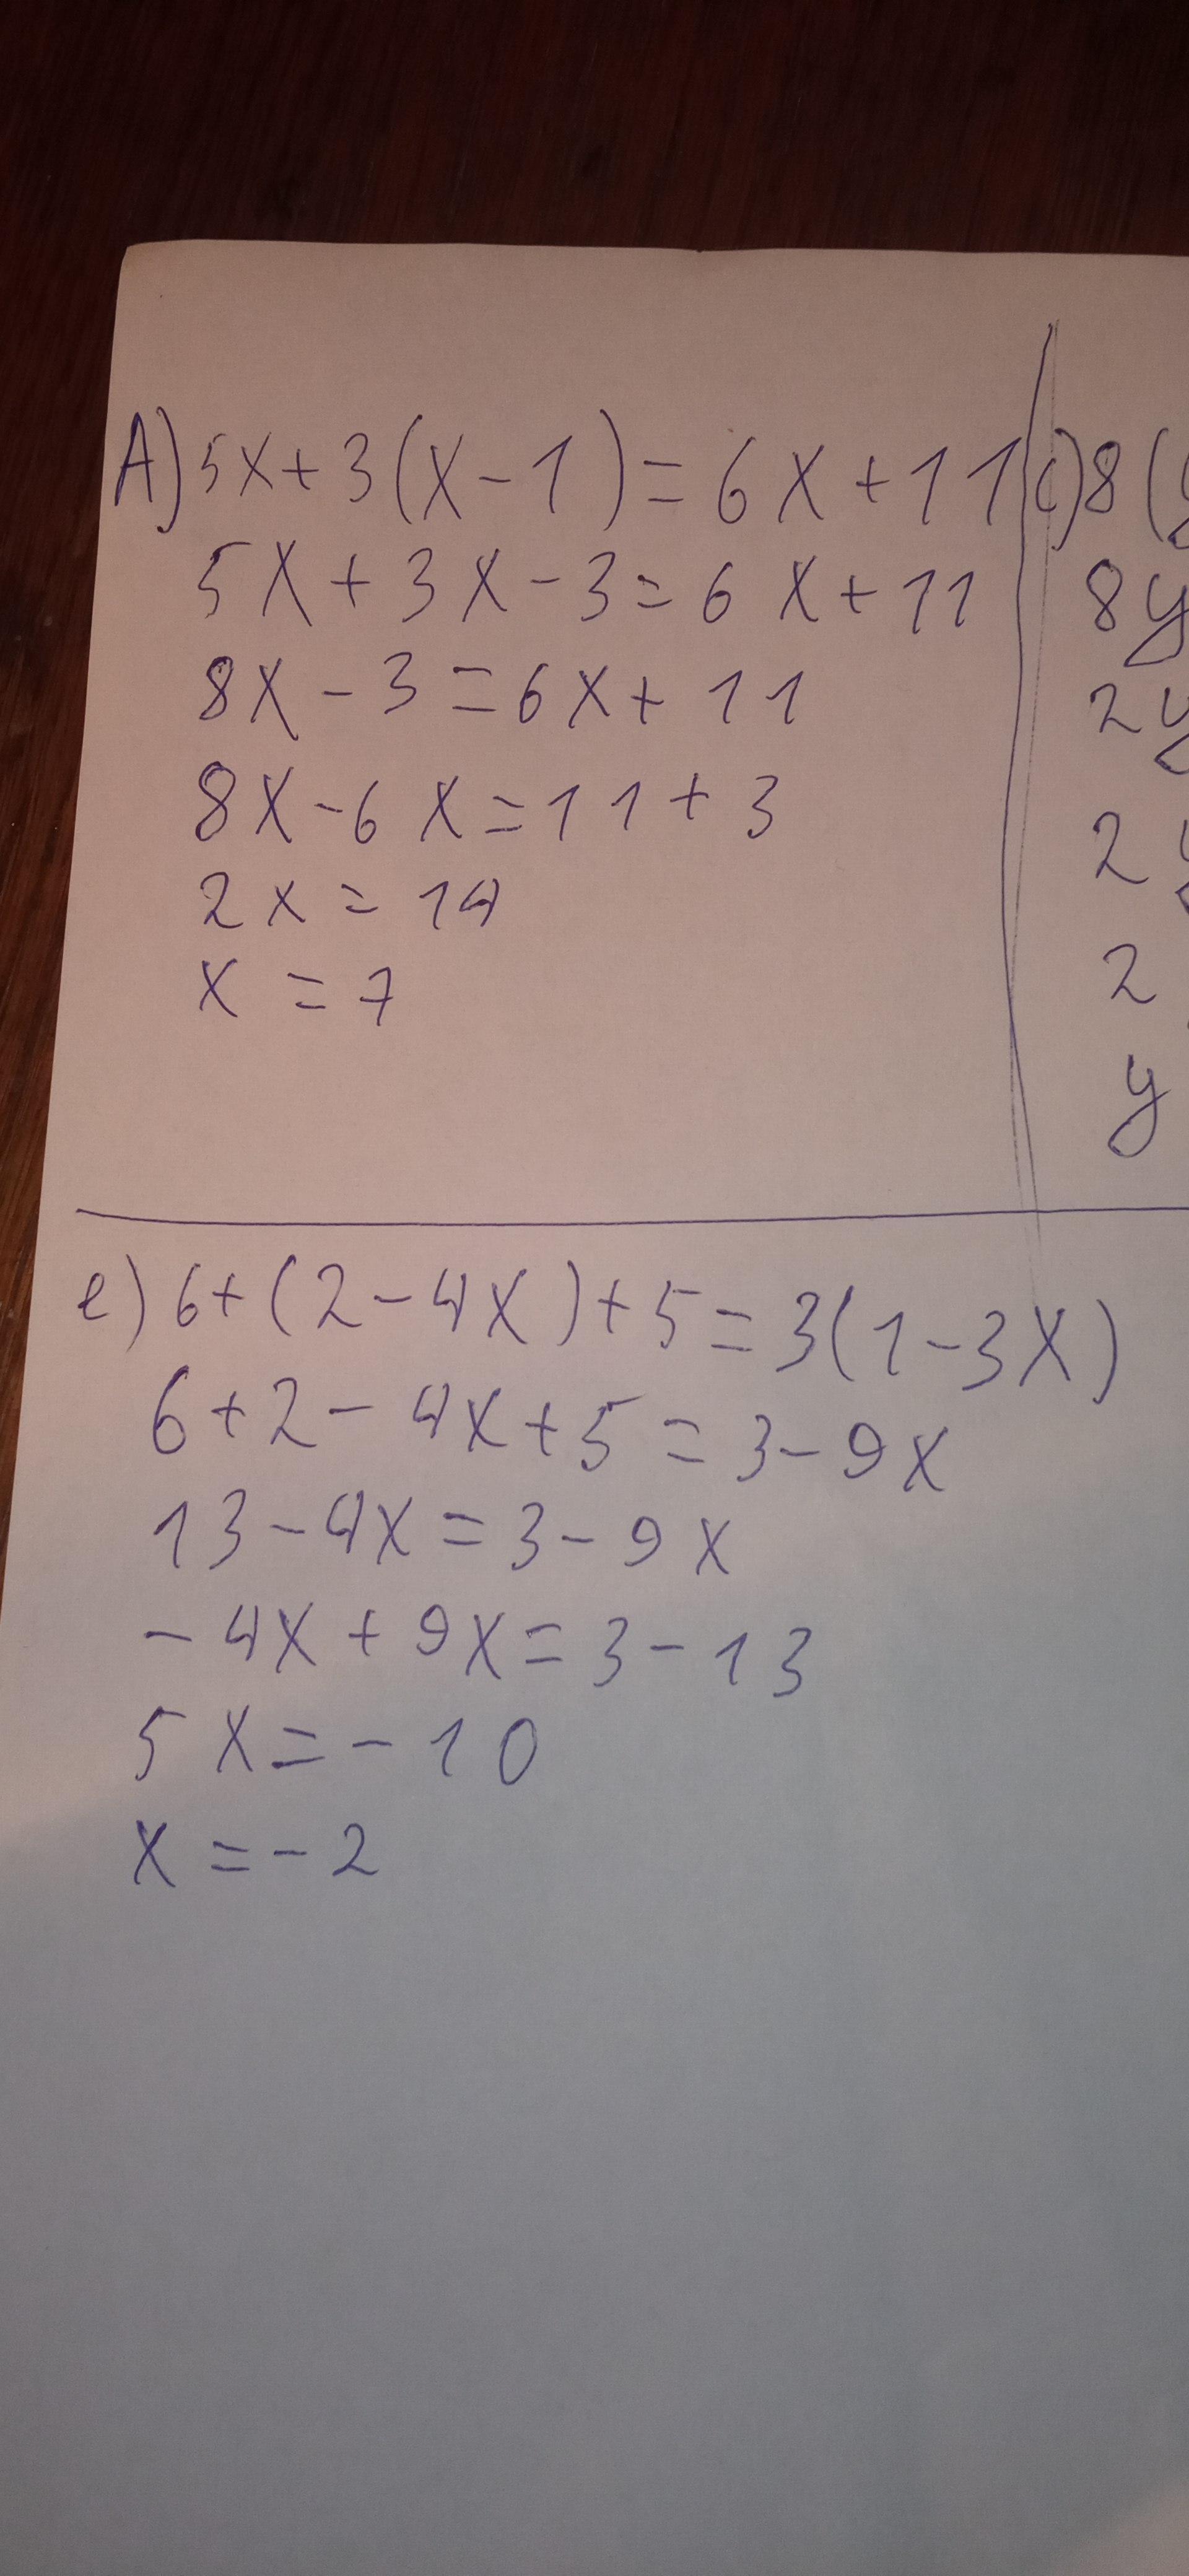 A) 5x+3(x-1)=6x+11
5x+3x-3=6x+11
8x-3=6x+11
8x-6x=11+3
2x=14
x=7
c) 8(
8y
2y
2
2
y
e) 6+(2-4x)+5=3(1-3x)
6+2-4x+5=3-9x
13-4x=3-9x
-4x+9x=3-13
5x=-10
x=-2